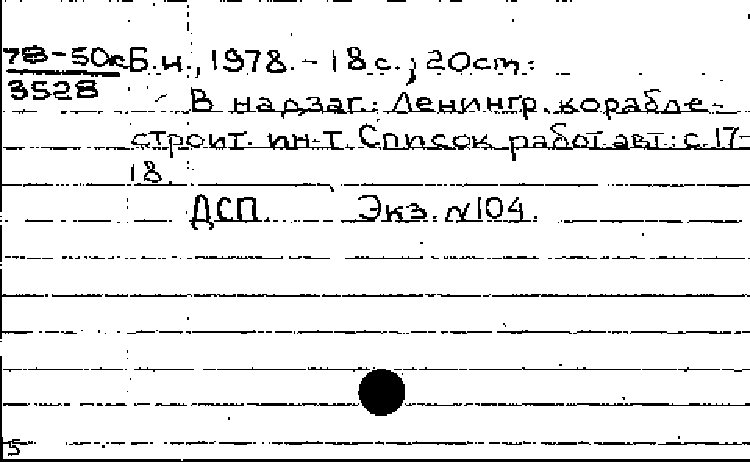 78-50к Б.и., 1978. - 18 с.; 20 см.
3528
В надзаг.: Ленингр. корабле-
строит. ин-т. Список работ авт.: с. 17-
18.
ДСП. Экз. №104.
5